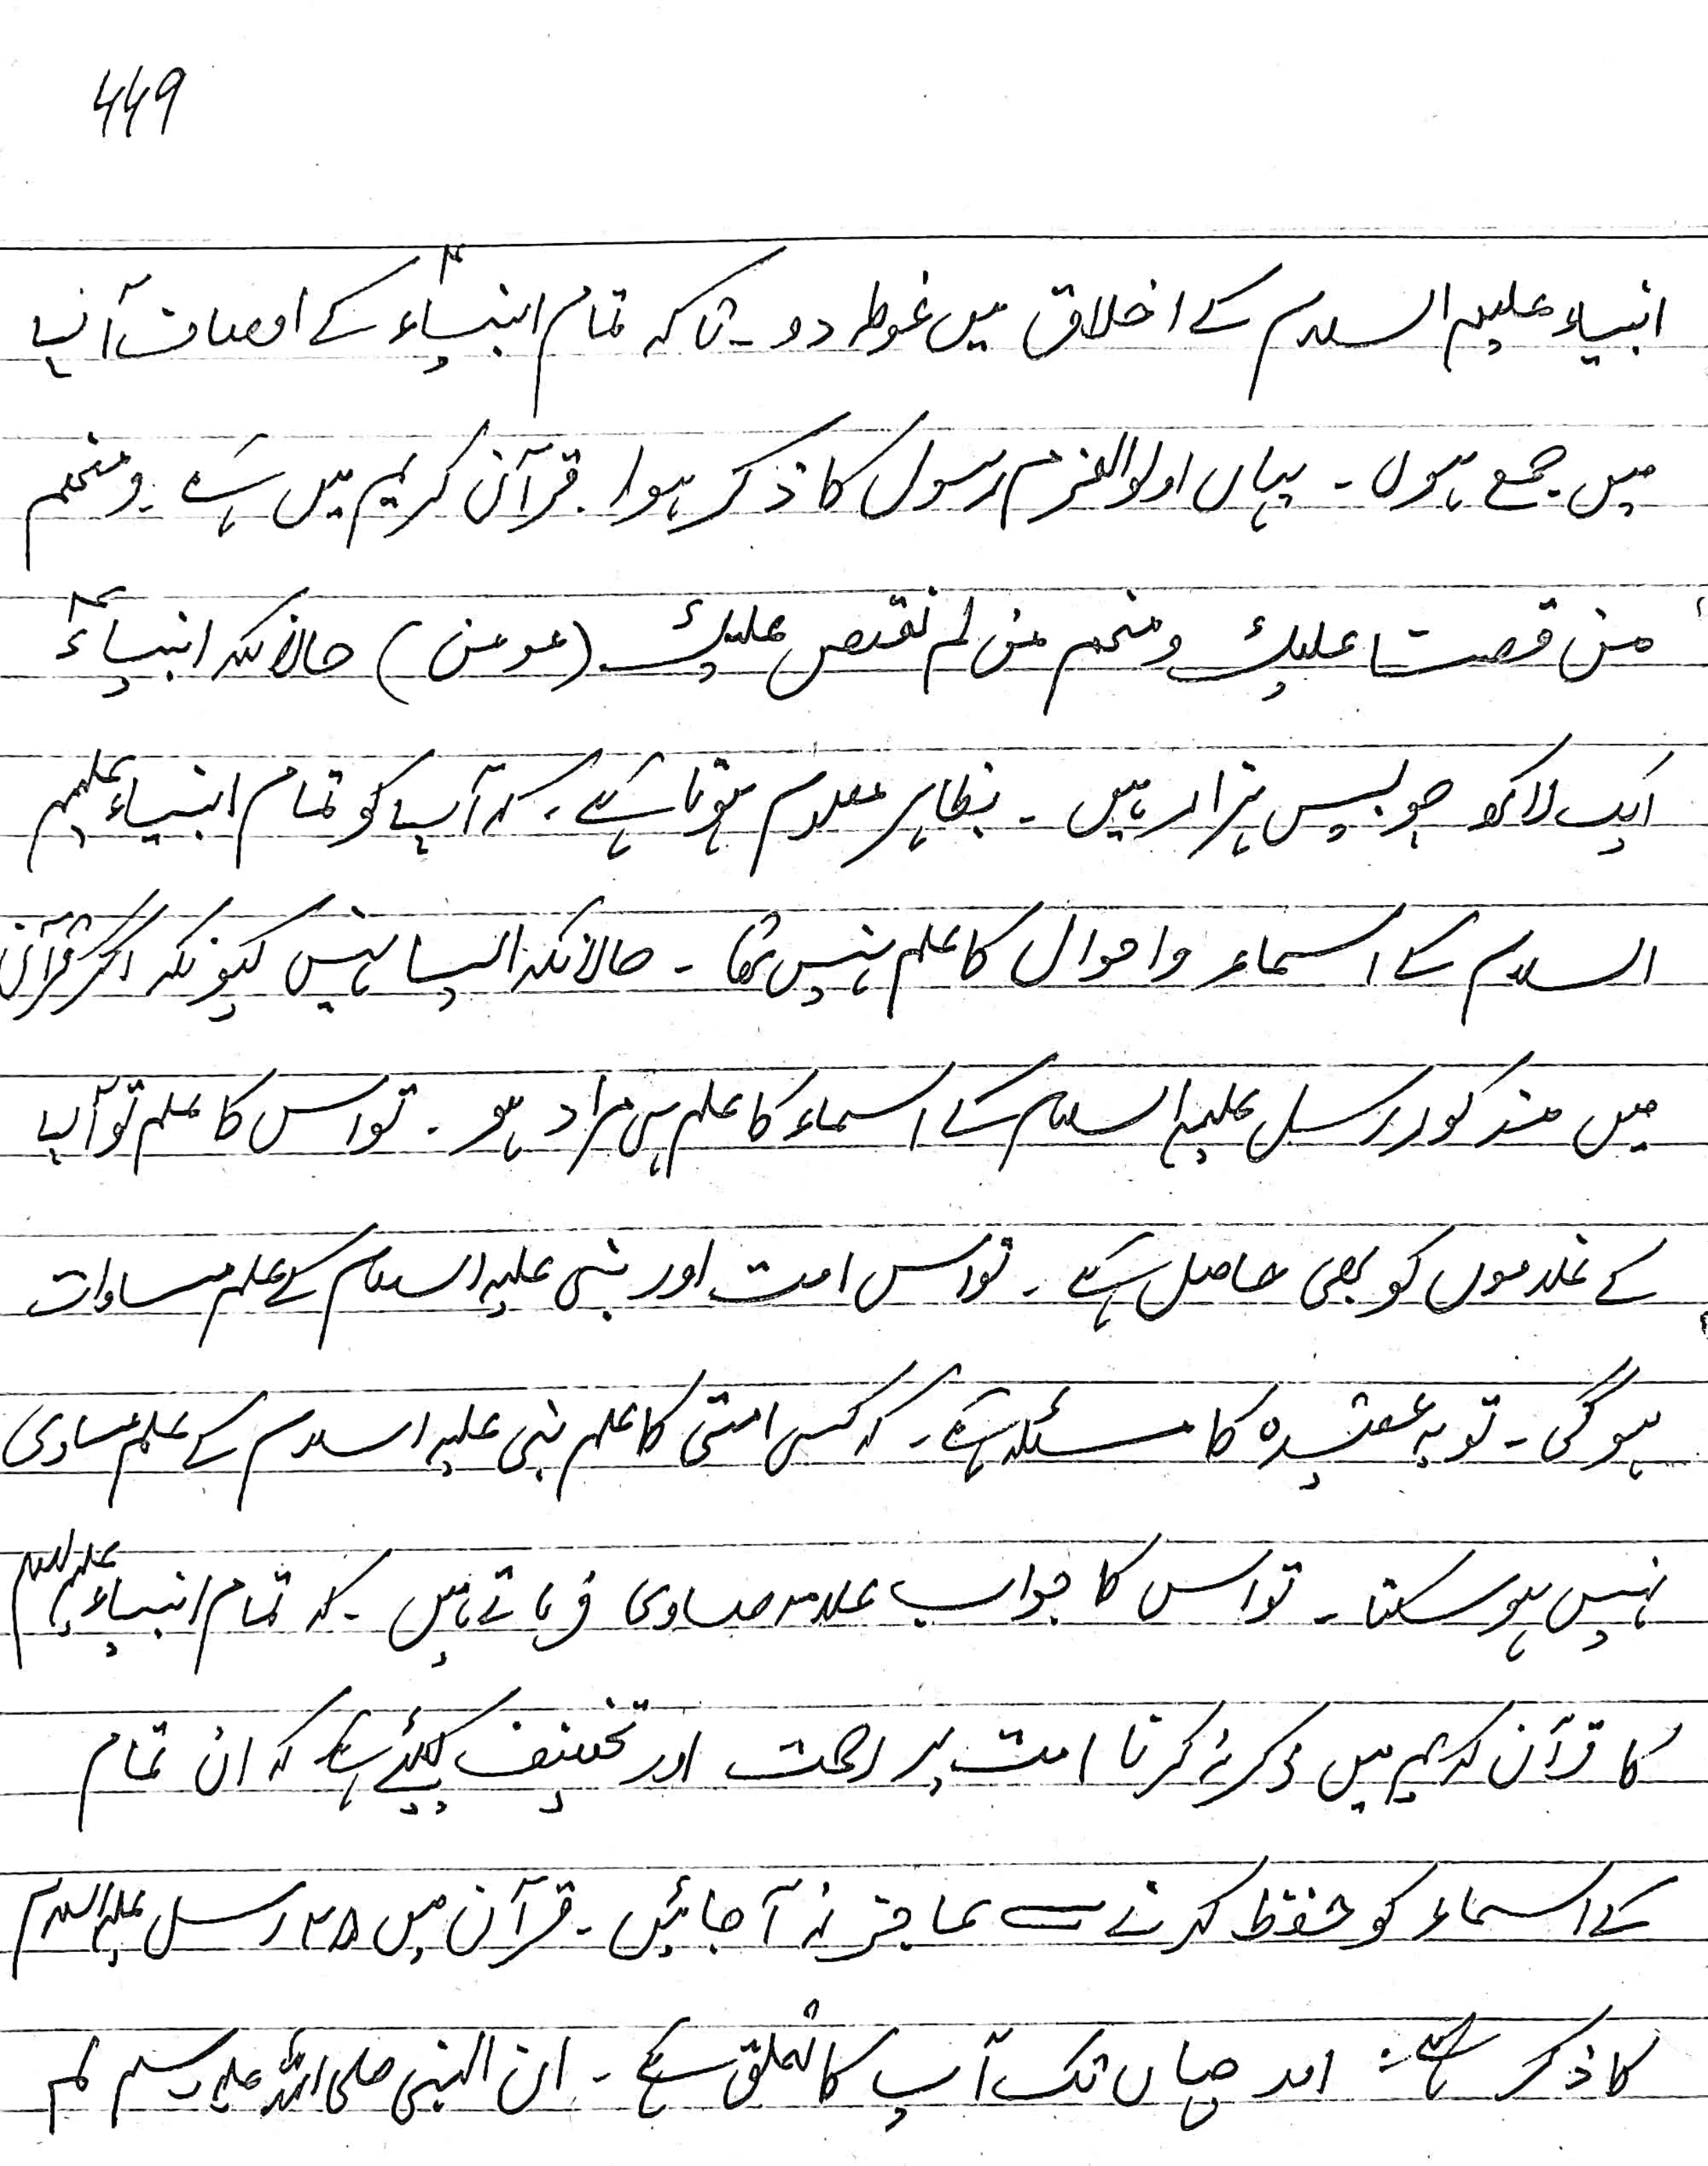 449
انبیاء علیہم السلام کے اخلاق میں غوطہ دو ۔ تاکہ تمام انبیاءؑ کے اوصاف آپ
میں جمع ہوں ۔ یہاں اولوالعزم رسول کا ذکر ہوا ۔ قرآن کریم میں ہے ۔ ومنھم
من قصصنا علیک ومنھم من لم نقصص علیک (مومن) حالانکہ انبیاءؑ
ایک لاکھ چوبیس ہزار ہیں ۔ بظاہر معلوم ہوتا ہے ۔ کہ آپ کو تمام انبیاء علیہم
السلام کے اسماء و احوال کا علم نہیں تھا ۔ حالانکہ ایسا نہیں کیونکہ اگر قرآن
میں مذکور رسل علیہم السلام کے اسماء کا علم ہی مراد ہو ۔ تو اس کا علم تو آپ
کے غلاموں کو بھی حاصل ہے ۔ تو اس امت اور نبی علیہ السلام کے علم مساوات
ہوگی ۔ تو یہ عقیدہ کا مسئلہ ہے ۔ کہ کسی امتی کا علم نبی علیہ السلام کے علم مساوی
نہیں ہو سکتا ۔ تو اس کا جواب علامہ صاوی فرماتے ہیں ۔ کہ تمام انبیاء علیہم السلام
کا قرآن کریم میں ذکر نہ کرنا امت پر رحمت اور تخفیف کیلئے ہے کہ ان تمام
کے اسماء کو حفظ کرنے سے عاجز نہ آجائیں ۔ قرآن میں ۲۸ رسل علیہم السلام
کا ذکر ہے ۔ اور جہاں تک آپ کا تعلق ہے ۔ ان النبی صلی اللہ علیہ وسلم لم